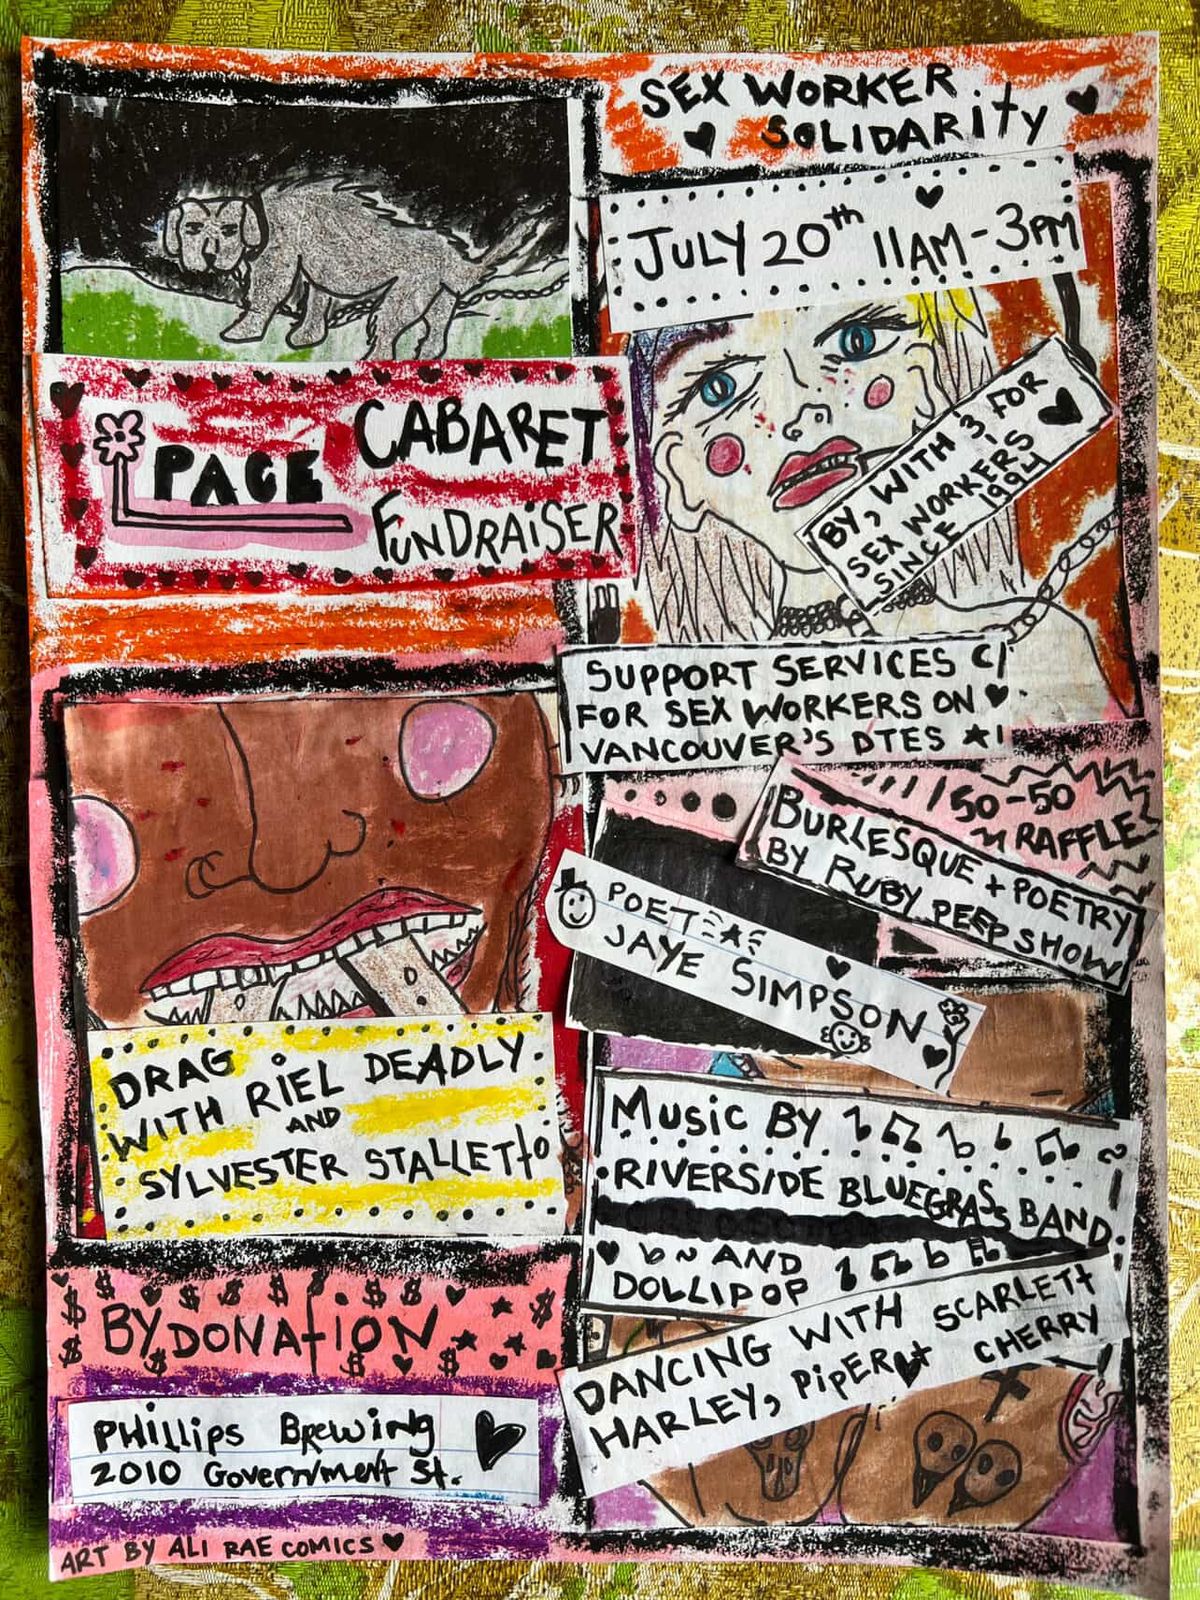 SEX WORKER
SOLIDARITY
JULY 20th 11AM-3PM
PACE
CABARET
FUNDRAISER
BY, WITH & FOR
SEX WORKERS
SINCE 1994
SUPPORT SERVICES
FOR SEX WORKERS ON
VANCOUVER'S DTES
50-50
RAFFLE
BURLESQUE + POETRY
BY RUBY PEEP SHOW
POET
JAYE SIMPSON
DRAG
WITH RIEL DEADLY
AND
SYLVESTER STALLETTO
MUSIC BY
RIVERSIDE BLUEGRASS BAND
AND
DOLLIPOP
DANCING WITH SCARLETT
HARLEY, PIPER + CHERRY
BY DONATION
PHillips Brewing
2010 Government St.
ART BY ALI RAE COMICS